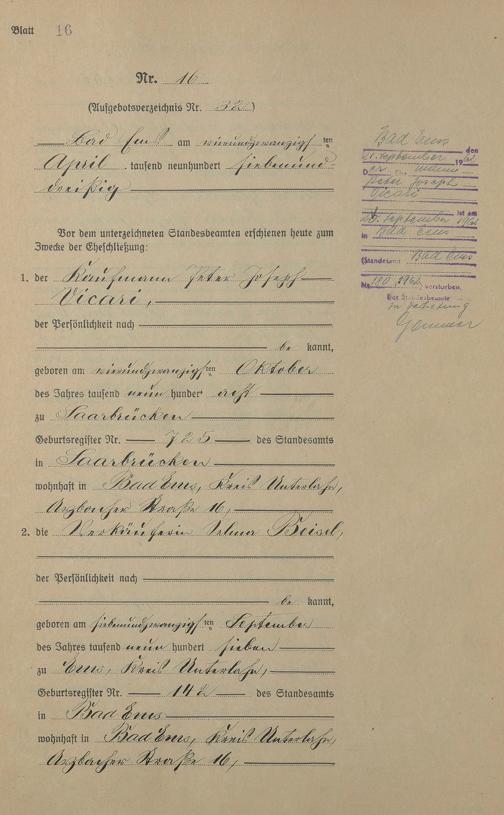 Blatt 16
Nr. 16
(Aufgebotsverzeichnis Nr. 32)
Bad Ems am vierundzwanzigsten
April tausend neunhundert siebenund-
dreißig
Vor dem unterzeichneten Standesbeamten erschienen heute zum
Zwecke der Eheschließung:
1. der Kaufmann Peter Joseph
Vicari,
der Persönlichkeit nach
be kannt,
geboren am vierundzwanzigsten Oktober
des Jahres tausend neun hundert acht
zu Saarbrücken
Geburtsregister Nr. 725 des Standesamts
in Saarbrücken
wohnhaft in Bad Ems, Kreis Unterlahn,
Arzbacher Straße 16,
2. die Verkäuferin Selma Beisel,
der Persönlichkeit nach
be kannt,
geboren am siebenundzwanzigsten September
des Jahres tausend neun hundert sieben
zu Ems, Kreis Unterlahn,
Geburtsregister Nr. 142 des Standesamts
in Bad Ems
wohnhaft in Bad Ems, Kreis Unterlahn,
Arzbacher Straße 16,
Bad Ems
den
September 19
D
Peter Joseph
Vicari
ist am
September
in Bad Ems
(Standesamt Bad Ems
Nr. verstorben.
Der Standesbeamte
In Vertretung